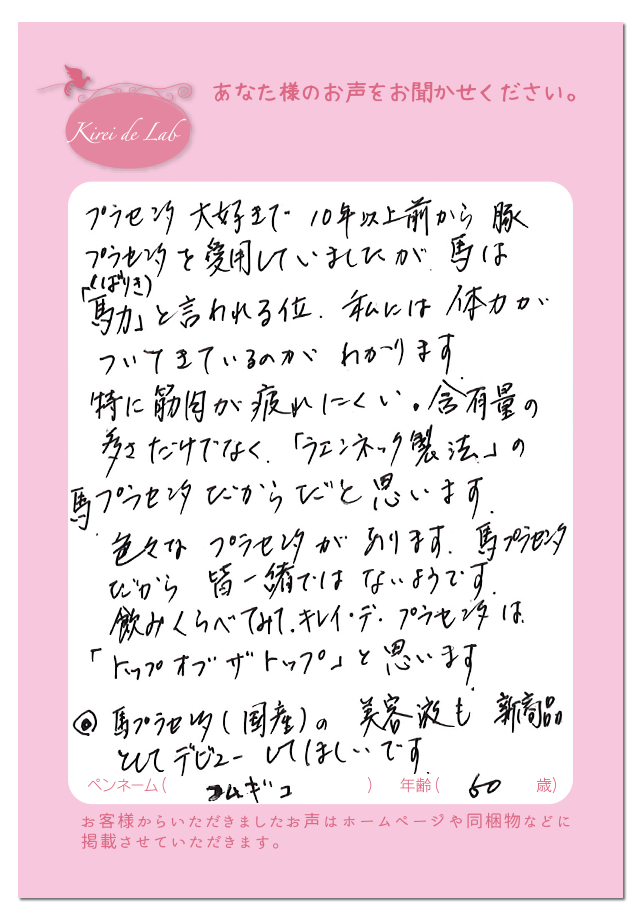 あなた様のお声をお聞かせください。
Kirei de Lab
プラセンタ 大好きで 10年以上前から 豚
プラセンタを愛用していましたが、馬は
(ばりき)
「馬力」と言われる位、私には体力が
ついてきているのがわかります。
特に筋肉が疲れにくい。含有量の
多さだけでなく、「ラエンネック製法」の
馬プラセンタだからだと思います。
色々なプラセンタが有ります。馬プラセンタ
だから 皆一緒では ないようです。
飲みくらべてみて、キレイ・デ・プラセンタは
「トップオブザトップ」と思います
◎馬プラセンタ(国産)の 美容液も 新商品
としてデビューしてほしいです。
ペンネーム( コムギコ ) 年齢( 60 歳)
お客様からいただきましたお声はホームページや同梱物などに
掲載させていただきます。